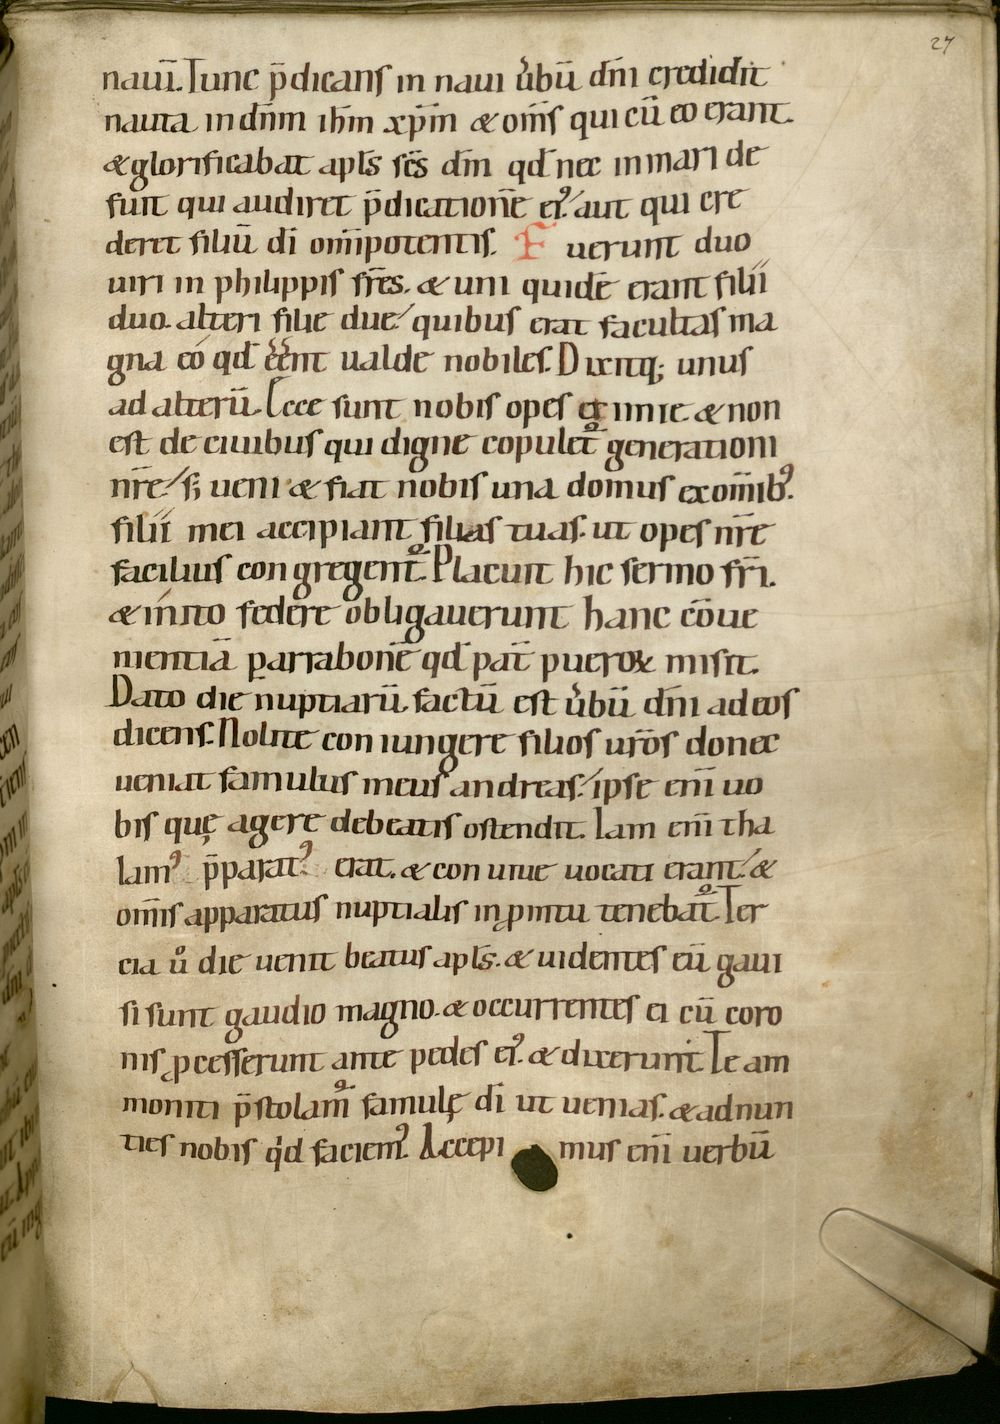 27
nauī. Tunc p̄dicans in naui ůbū dn̄i credidit
nauta in dn̄m ih̄m xp̄m & om̄s qui cū eo erant.
& glorificabat apl̄s sc̄s dm̄ qd̄ nec in mari de
sunt qui audiret p̄dicationē eiꝰ. aut qui cre
deret filiū dī om̄ipotentis. Fuerunt duo
uiri in philippis fr̄es. & uni quidē erant filii
duo. alteri filie due. quibus erat facultas ma
gna eo qd̄ eēnt ualde nobiles. Dixitq; unus
ad alterū. Ecce sunt nobis opes eximie & non
est de ciuibus qui digne copulet᷑ generationi
nr̄e. s; ueni & fiat nobis una domus ex om̄ibꝰ.
filii mei accipiant filias tuas. ut opes nr̄e
facilius congregent᷑. Placuit hic sermo fr̄i.
& inito federe obligauerunt hanc cōue
nientiā parrabonē qd̄ pat̄ pueroꝝ misit.
Dato die nuptiarū. factū est ůbū dn̄i ad eos
dicens. Nolite coniungere filios ur̄os donec
ueniat famulus meus andreas. ipse eni̅ uo
bis quę agere debeatis ostendit. Iam eni̅ tha
lamꝰ p̄paratꝰ erat. & conuiue uocati erant. &
om̄is apparatus nuptialis in ꝓmtu tenebat᷑. Ter
cia ů die uenit beatus apl̄s. & uidentes eū gaui
si sunt gaudio magno. & occurrentes ei cū coro
nis ꝓcesserunt ante pedes eiꝰ. & dixerunt. Te am
moniti p̄stolam᷑ famulę dī ut uenias. & adnun
ties nobis qͥd faciemꝰ. Accepimus eni̅ uerbū